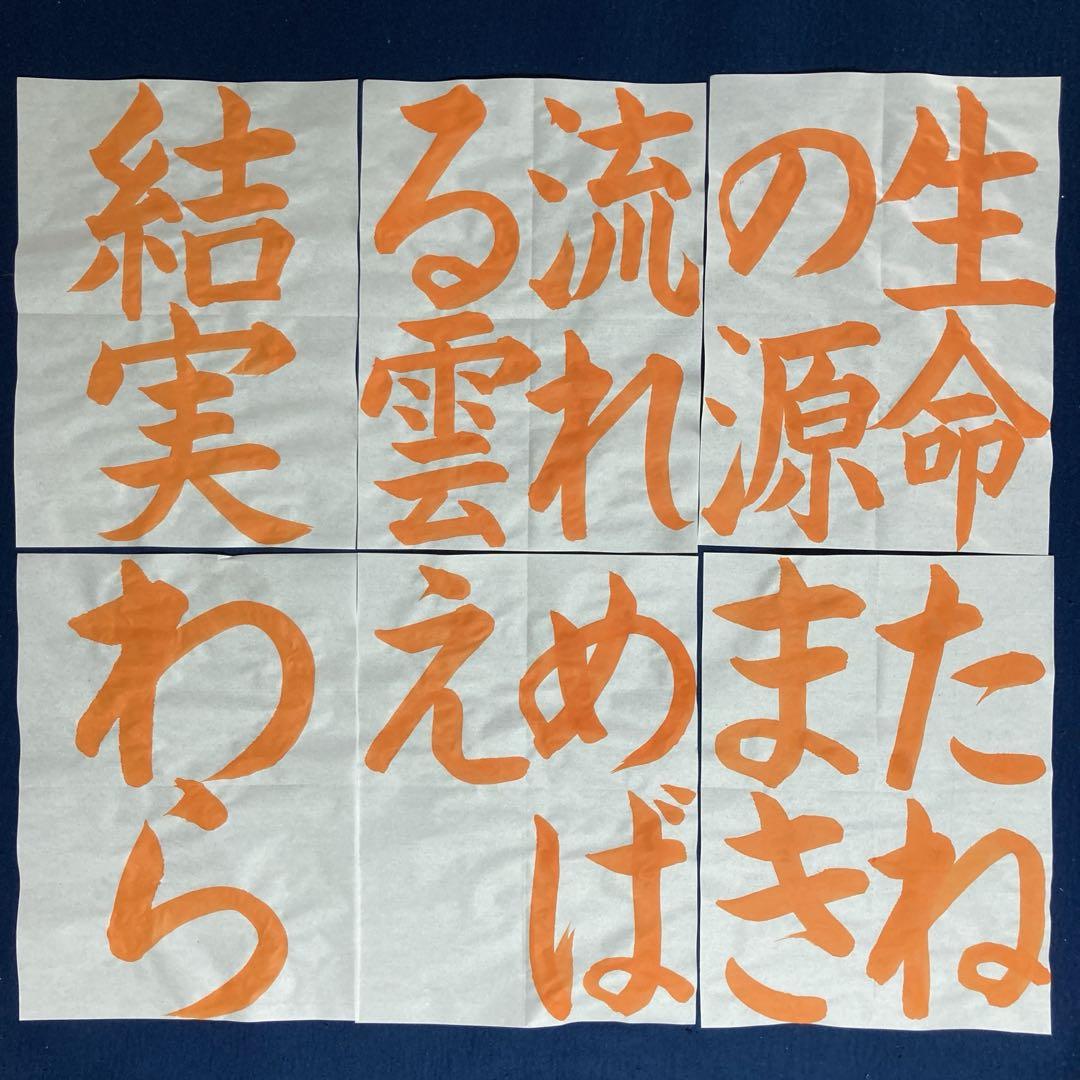 生命
の源
流れ
る雲
結実
たね
まき
めば
え
わら